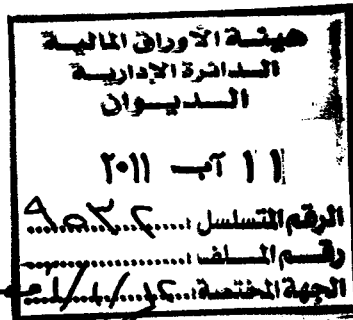 هيئة الأوراق المالية
الدائرة الإدارية
الديوان
١١ آب ٢٠١١
الرقم المتسلسل :
رقم الملف :
الجهة المختصة :